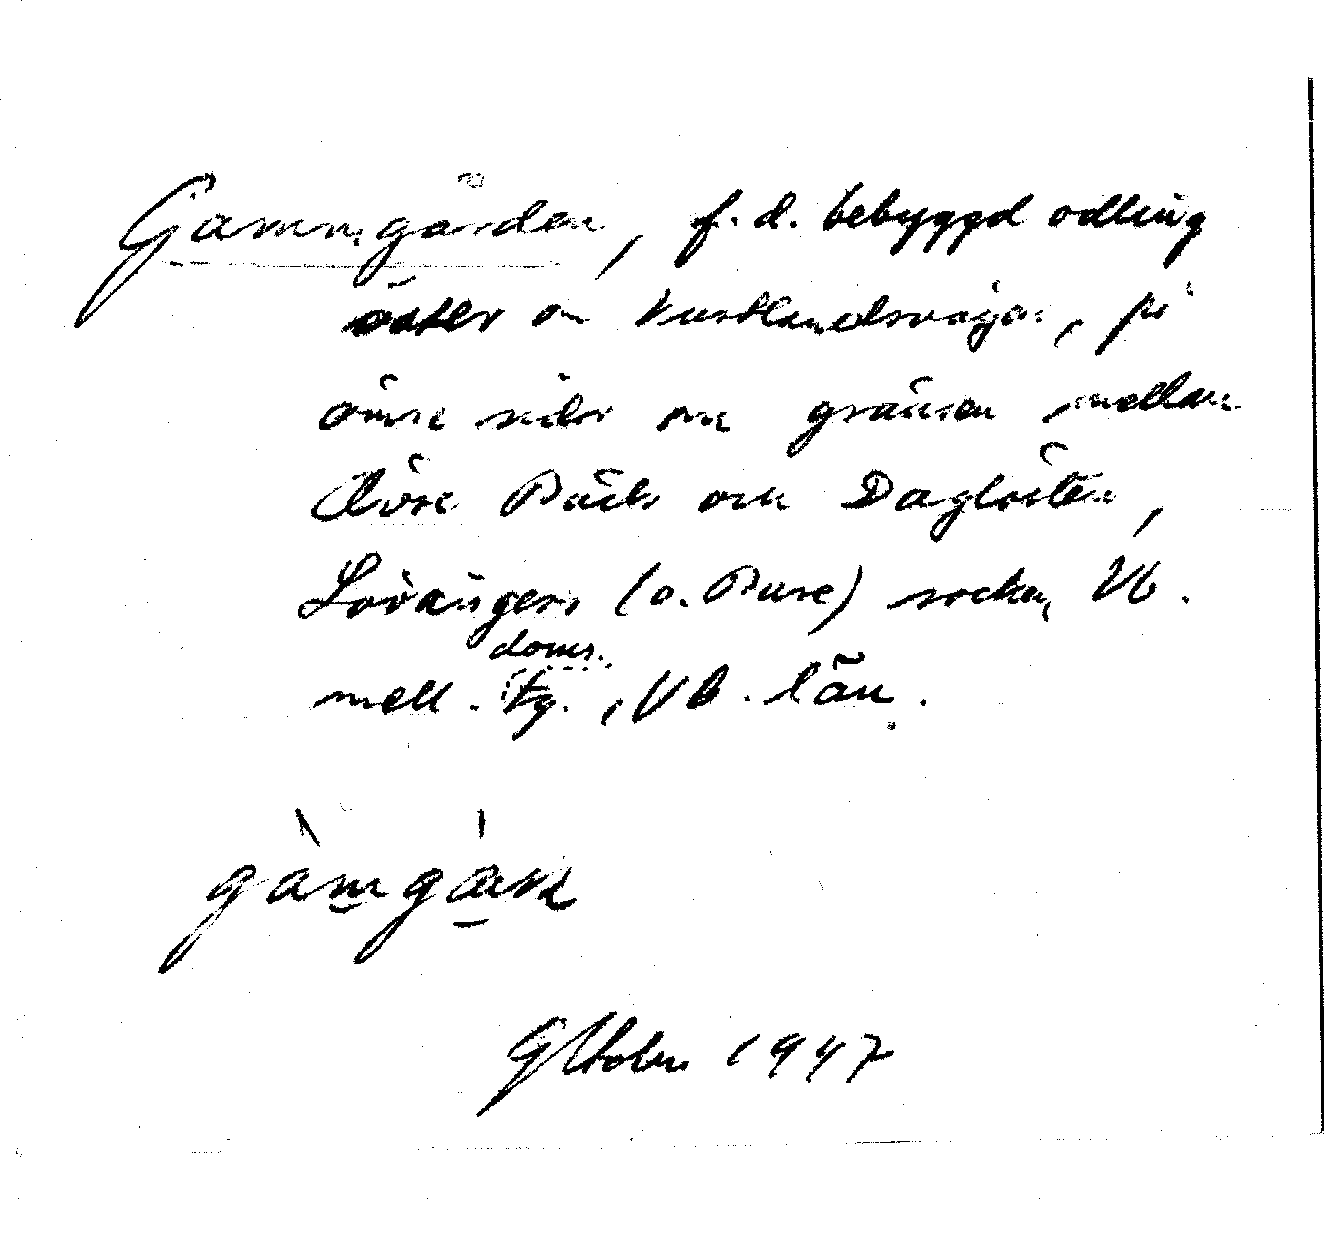 Gammgården, f.d. bebyggd odling
öster om kustlandsvägen, på
ömse sidor om gränsen mellan
Övre Bäck och Daglösten,
Lövångers (o. Bure) socken, Vb.
doms.
mell. tg., Vb. län.
gàmgàɳ
G Holm 1947